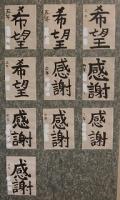 希望
希望
希望
希望
感謝
感謝
感謝
感謝
感謝
感謝